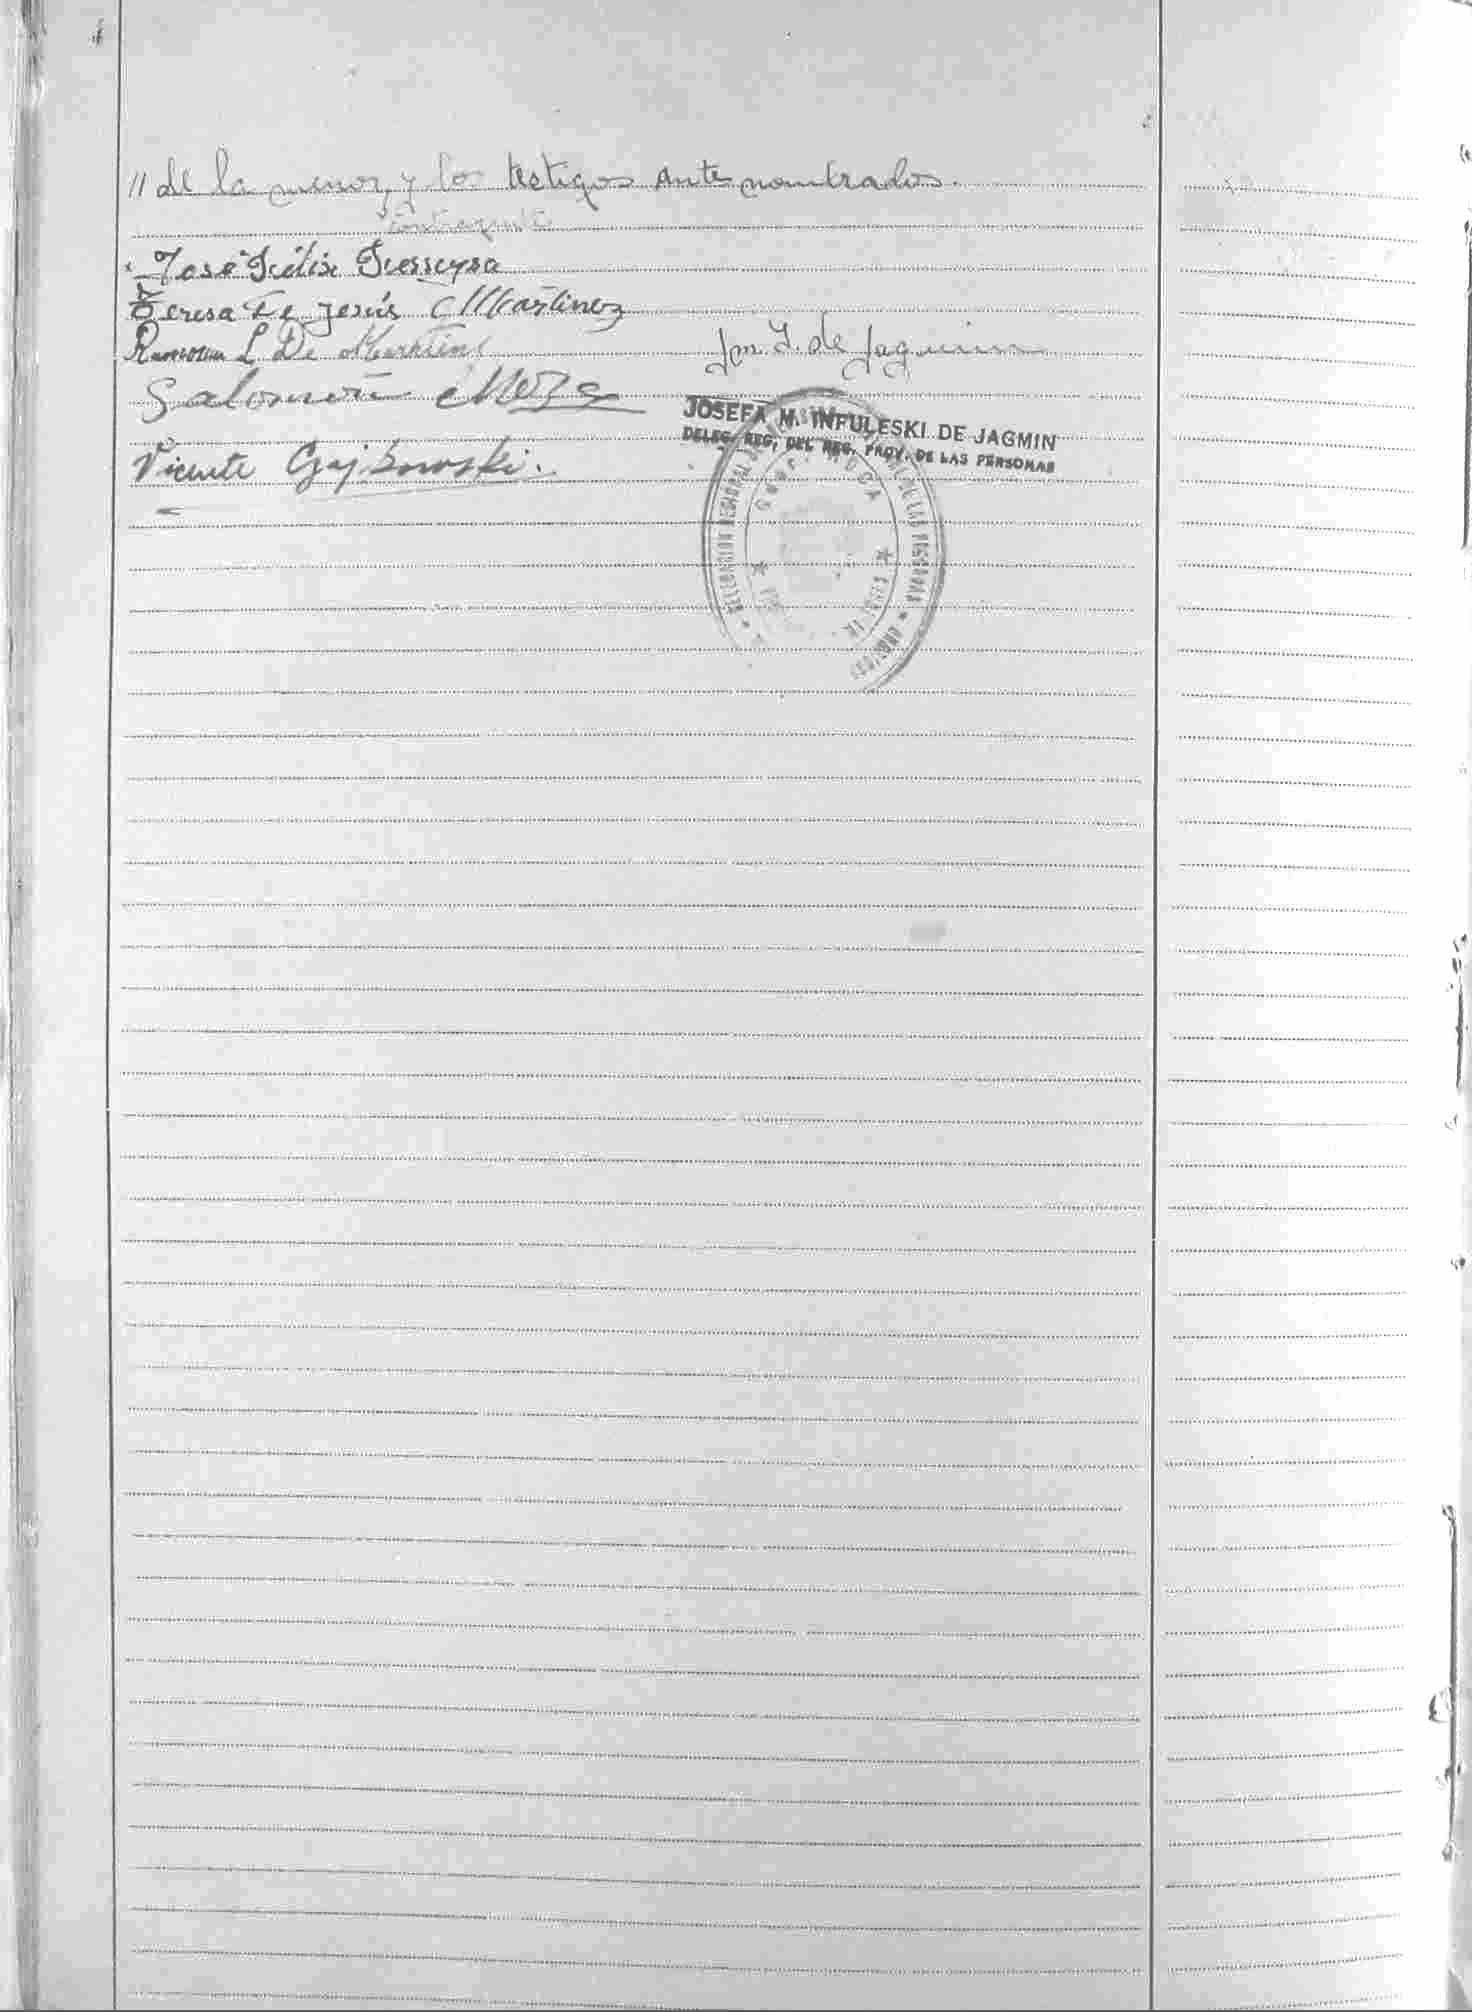 // de la menor, y los testigos ante nombrados.
contrayente
José Félix
Teresa De Jesús Martinez
Ramona L De Martinez
de Jagmin
Salomón Meza
JOSEFA M. INFULESKI DE JAGMIN
DELEG. REG. DEL REG. PROV. DE LAS PERSONAS
Vicente Gajkowski.
DELEGACION REGIONAL DE LAS PERSONAS